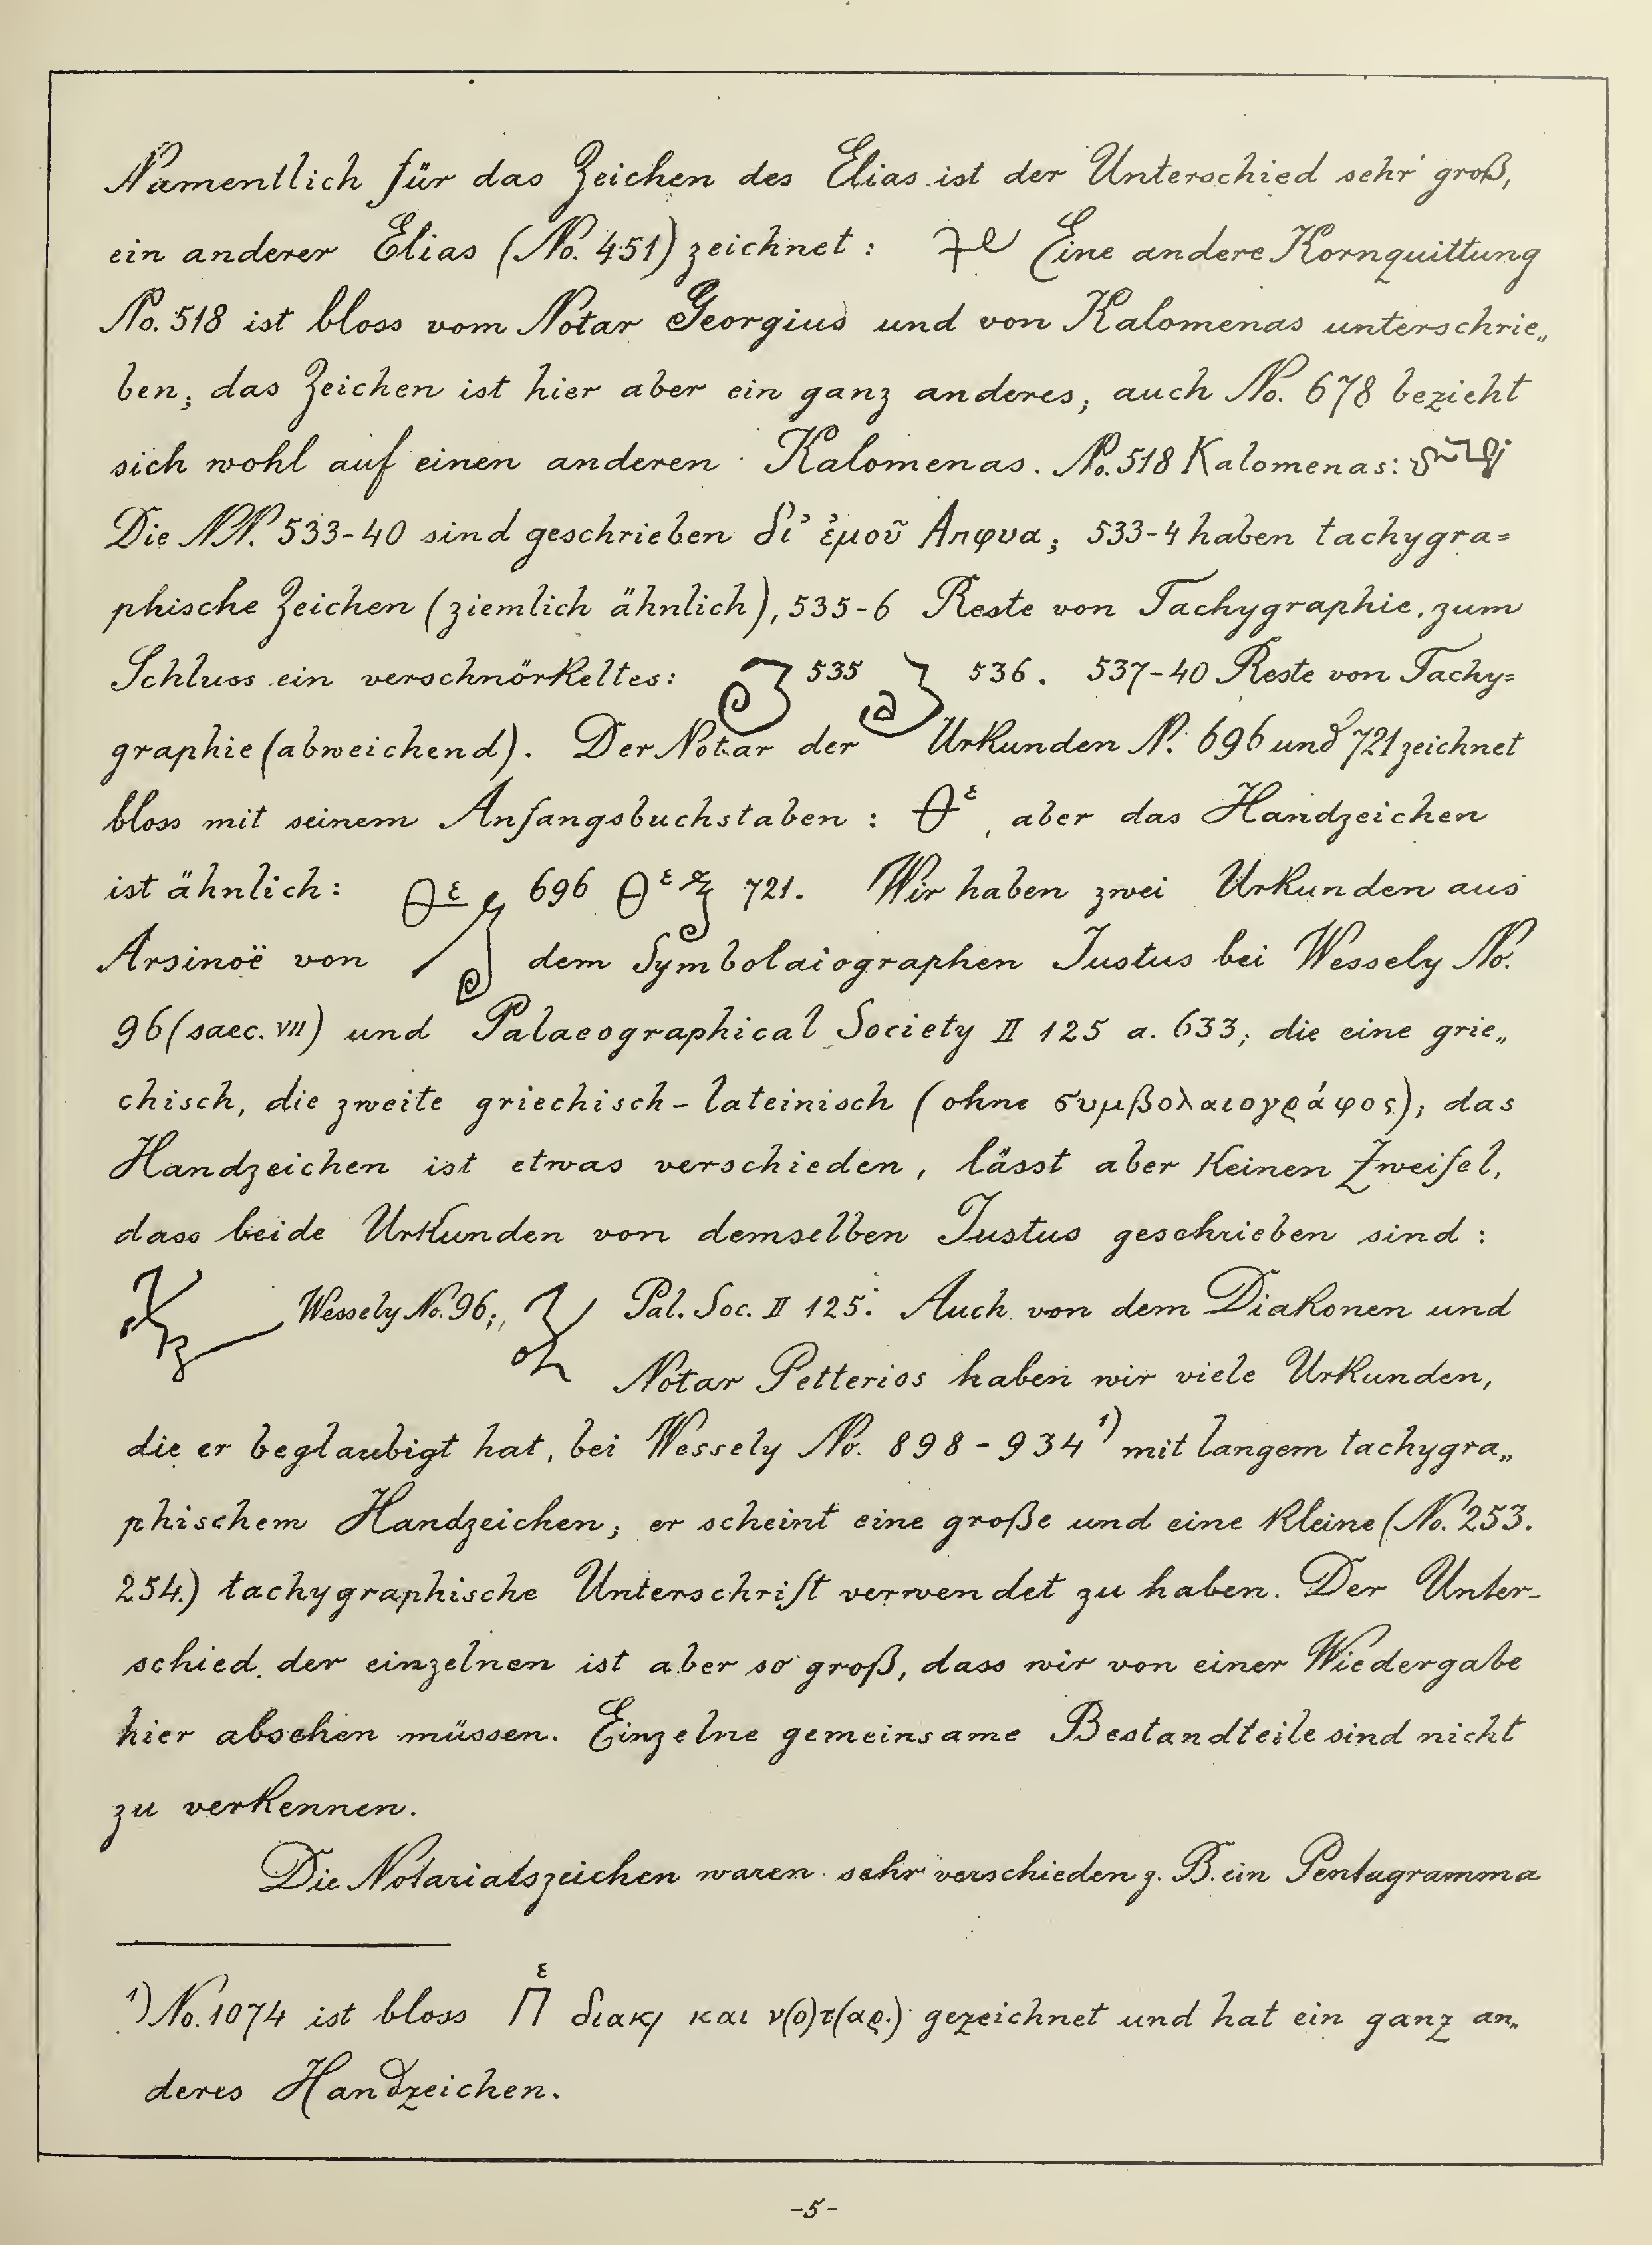 Namentlich für das Zeichen des Elias ist der Unterschied sehr groß,
ein anderer Elias (No. 451) zeichnet : Eine andere Kornquittung
No. 518 ist bloss vom Notar Georgius und von Kalomenas unterschrie„
ben; das Zeichen ist hier aber ein ganz anderes; auch No. 678 bezieht
sich wohl auf einen anderen Kalomenas. No. 518 Kalomenas:
Die NN. 533-40 sind geschrieben δι’ ἐμοῦ Απφυα; 533-4 haben tachygra=
phische Zeichen (ziemlich ähnlich), 535-6 Reste von Tachygraphie, zum
Schluss ein verschnörkeltes: 535 536. 537-40 Reste von Tachy=
graphie (abweichend). Der Notar der Urkunden N. 696 und 721 zeichnet
bloss mit seinem Anfangsbuchstaben : Θε, aber das Handzeichen
ist ähnlich : Θε 696 Θε 721. Wir haben zwei Urkunden aus
Arsinoë von dem Symbolaiographen Justus bei Wessely No.
96 (saec. VII) und Palaeographical Society II 125 a. 633; die eine grie„
chisch, die zweite griechisch-lateinisch (ohne συμβολαιογράφος); das
Handzeichen ist etwas verschieden, lässt aber Keinen Zweifel,
dass beide Urkunden von demselben Justus geschrieben sind :
Wessely No. 96; Pal. Soc. II 125. Auch von dem Diakonen und
Notar Petterios haben wir viele Urkunden,
die er beglaubigt hat, bei Wessely No. 898-934¹) mit langem tachygra„
phischem Handzeichen; er scheint eine große und eine kleine (No. 253.
254.) tachygraphische Unterschrift verwendet zu haben. Der Unter-
schied der einzelnen ist aber so groß, dass wir von einer Wiedergabe
hier absehen müssen. Einzelne gemeinsame Bestandteile sind nicht
zu verkennen.
Die Notariatszeichen waren sehr verschieden z. B. ein Pentagramma
¹) No. 1074 ist bloss Πε διακ/ και ν(ο)τ(αρ.) gezeichnet und hat ein ganz an„
deres Handzeichen.
-5-